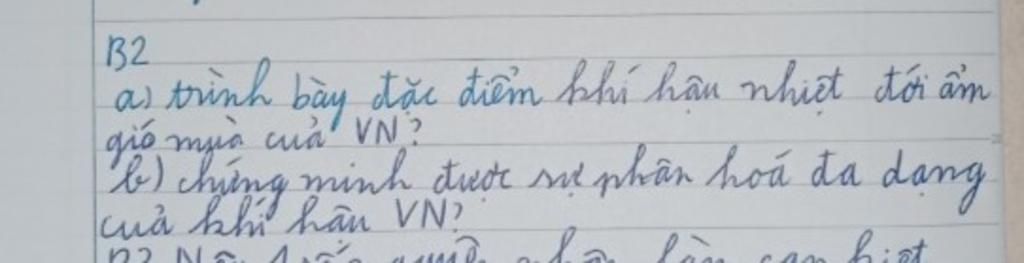 B2
a) trình bày đặc điểm khí hậu nhiệt đới ẩm
gió mùa cuả VN?
b) chứng minh được sự phân hoá đa dạng
cuả khí hậu VN?